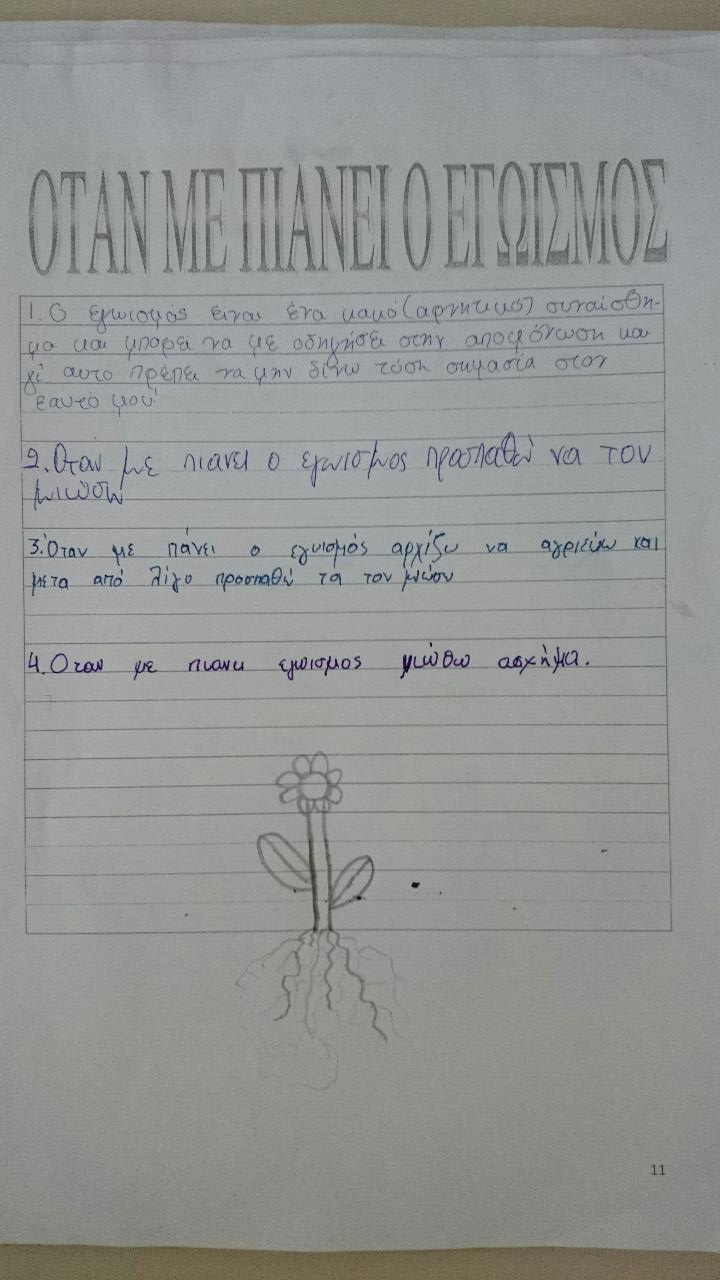 ΟΤΑΝ ΜΕ ΠΙΑΝΕΙ Ο ΕΓΩΙΣΜΟΣ
1. Ο εγωισμός είναι ένα κακό (αρνητικό) συναίσθη-
μα και μπορεί να με οδηγήσει στην απομόνωση και
γι αυτο πρέπει να μην δίνω τόση σημασία στον
εαυτό μου
2. Οταν με πιανει ο εγωισμος προσπαθώ να τον
μιώσω
3. Όταν με πάνει ο εγωισμός αρχίζω να αγριεύω και
μετα από λίγο προσπαθώ τα τον μιώσω
4. Οταν με πιανει εγωισμος γιώθω ασχήμα.
11